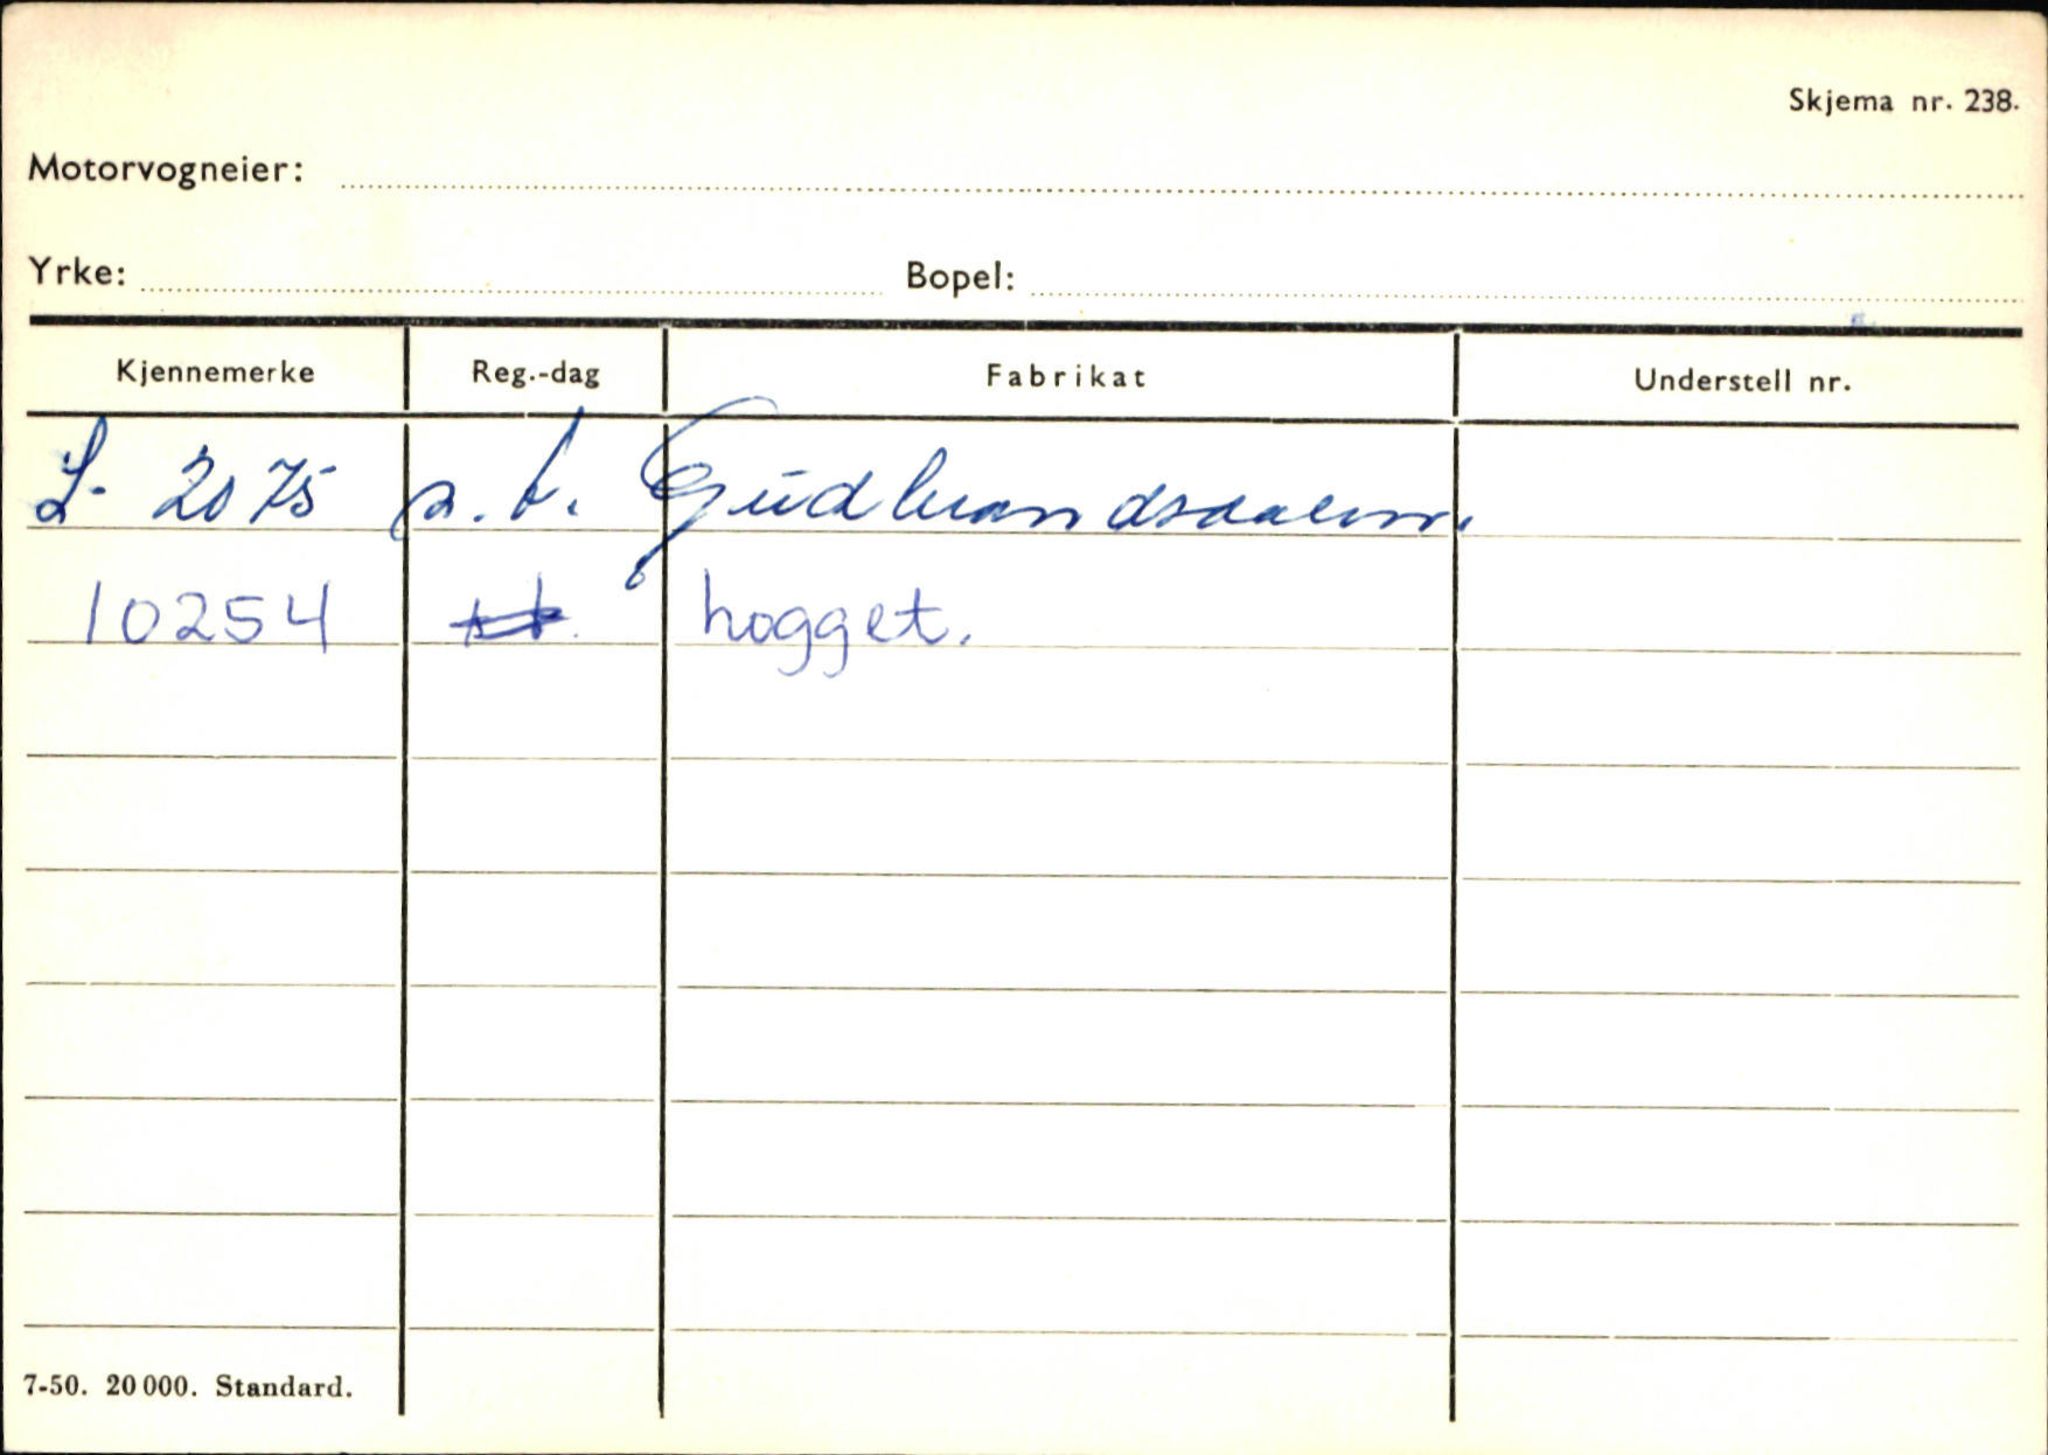 Skjema nr. 238.
Motorvogneier:
Yrke: Bopel:
Kjennemerke Reg.-dag Fabrikat Understell nr.
L- 2075 a.t. Gudbrandsdalen.
10254 hogget.
7-50. 20 000. Standard.